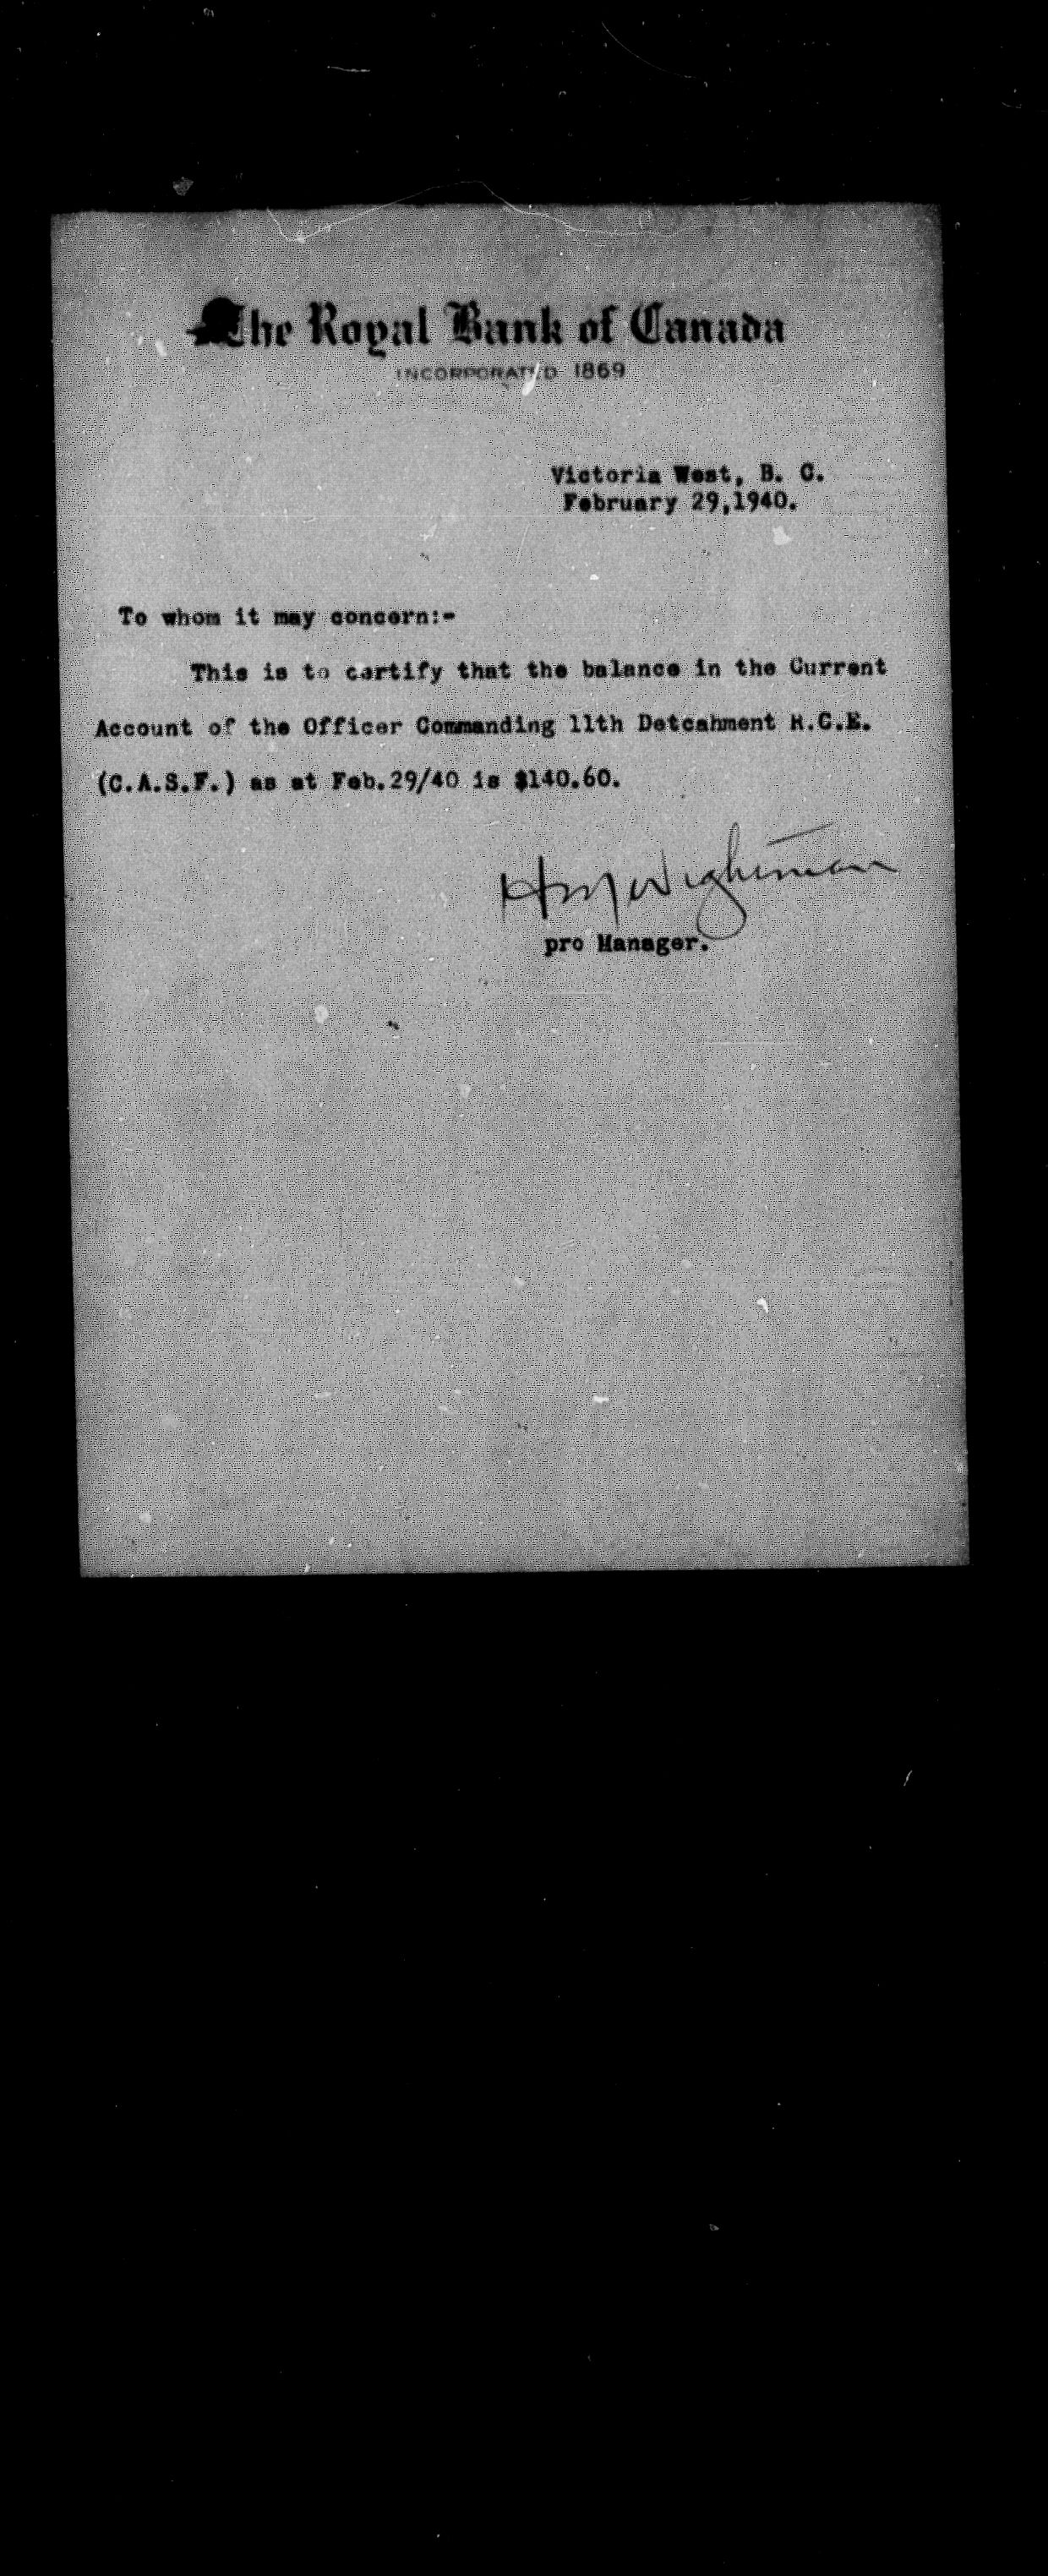 The Royal Bank of Canada
INCORPORATED 1869
Victoria West, B. C.
February 29,1940.
To whom it may concern:-
This is to certify that the balance in the Current
Account of the Officer Commanding 11th Detcahment R.C.E.
(C.A.S.F.) as at Feb.29/40 is $140.60.
HM Wightman
pro Manager.